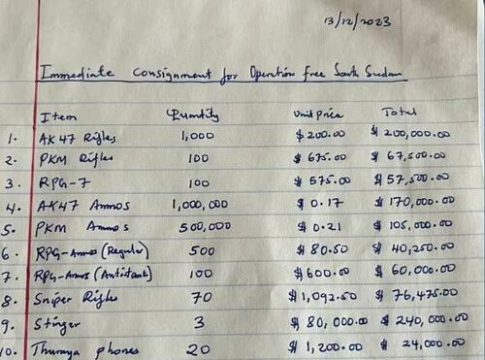 13/12/2023
Immediate Consignment for Operation Free South Sudan
Item Quantity Unit Price Total
1. AK47 Rifles 1,000 $ 200.00 $ 200,000.00
2. PKM Rifles 100 $ 675.00 $ 67,500.00
3. RPG-7 100 $ 575.00 $ 57,500.00
4. AK47 Ammos 1,000,000 $ 0.17 $ 170,000.00
5. PKM Ammos 500,000 $ 0.21 $ 105,000.00
6. RPG-Ammos (Regular) 500 $ 80.50 $ 40,250.00
7. RPG-Ammos (Antitank) 100 $ 600.00 $ 60,000.00
8. Sniper Rifles 70 $ 1,092.50 $ 76,475.00
9. Stinger 3 $ 80,000.00 $ 240,000.00
10. Thuraya phones 20 $ 1,200.00 $ 24,000.00